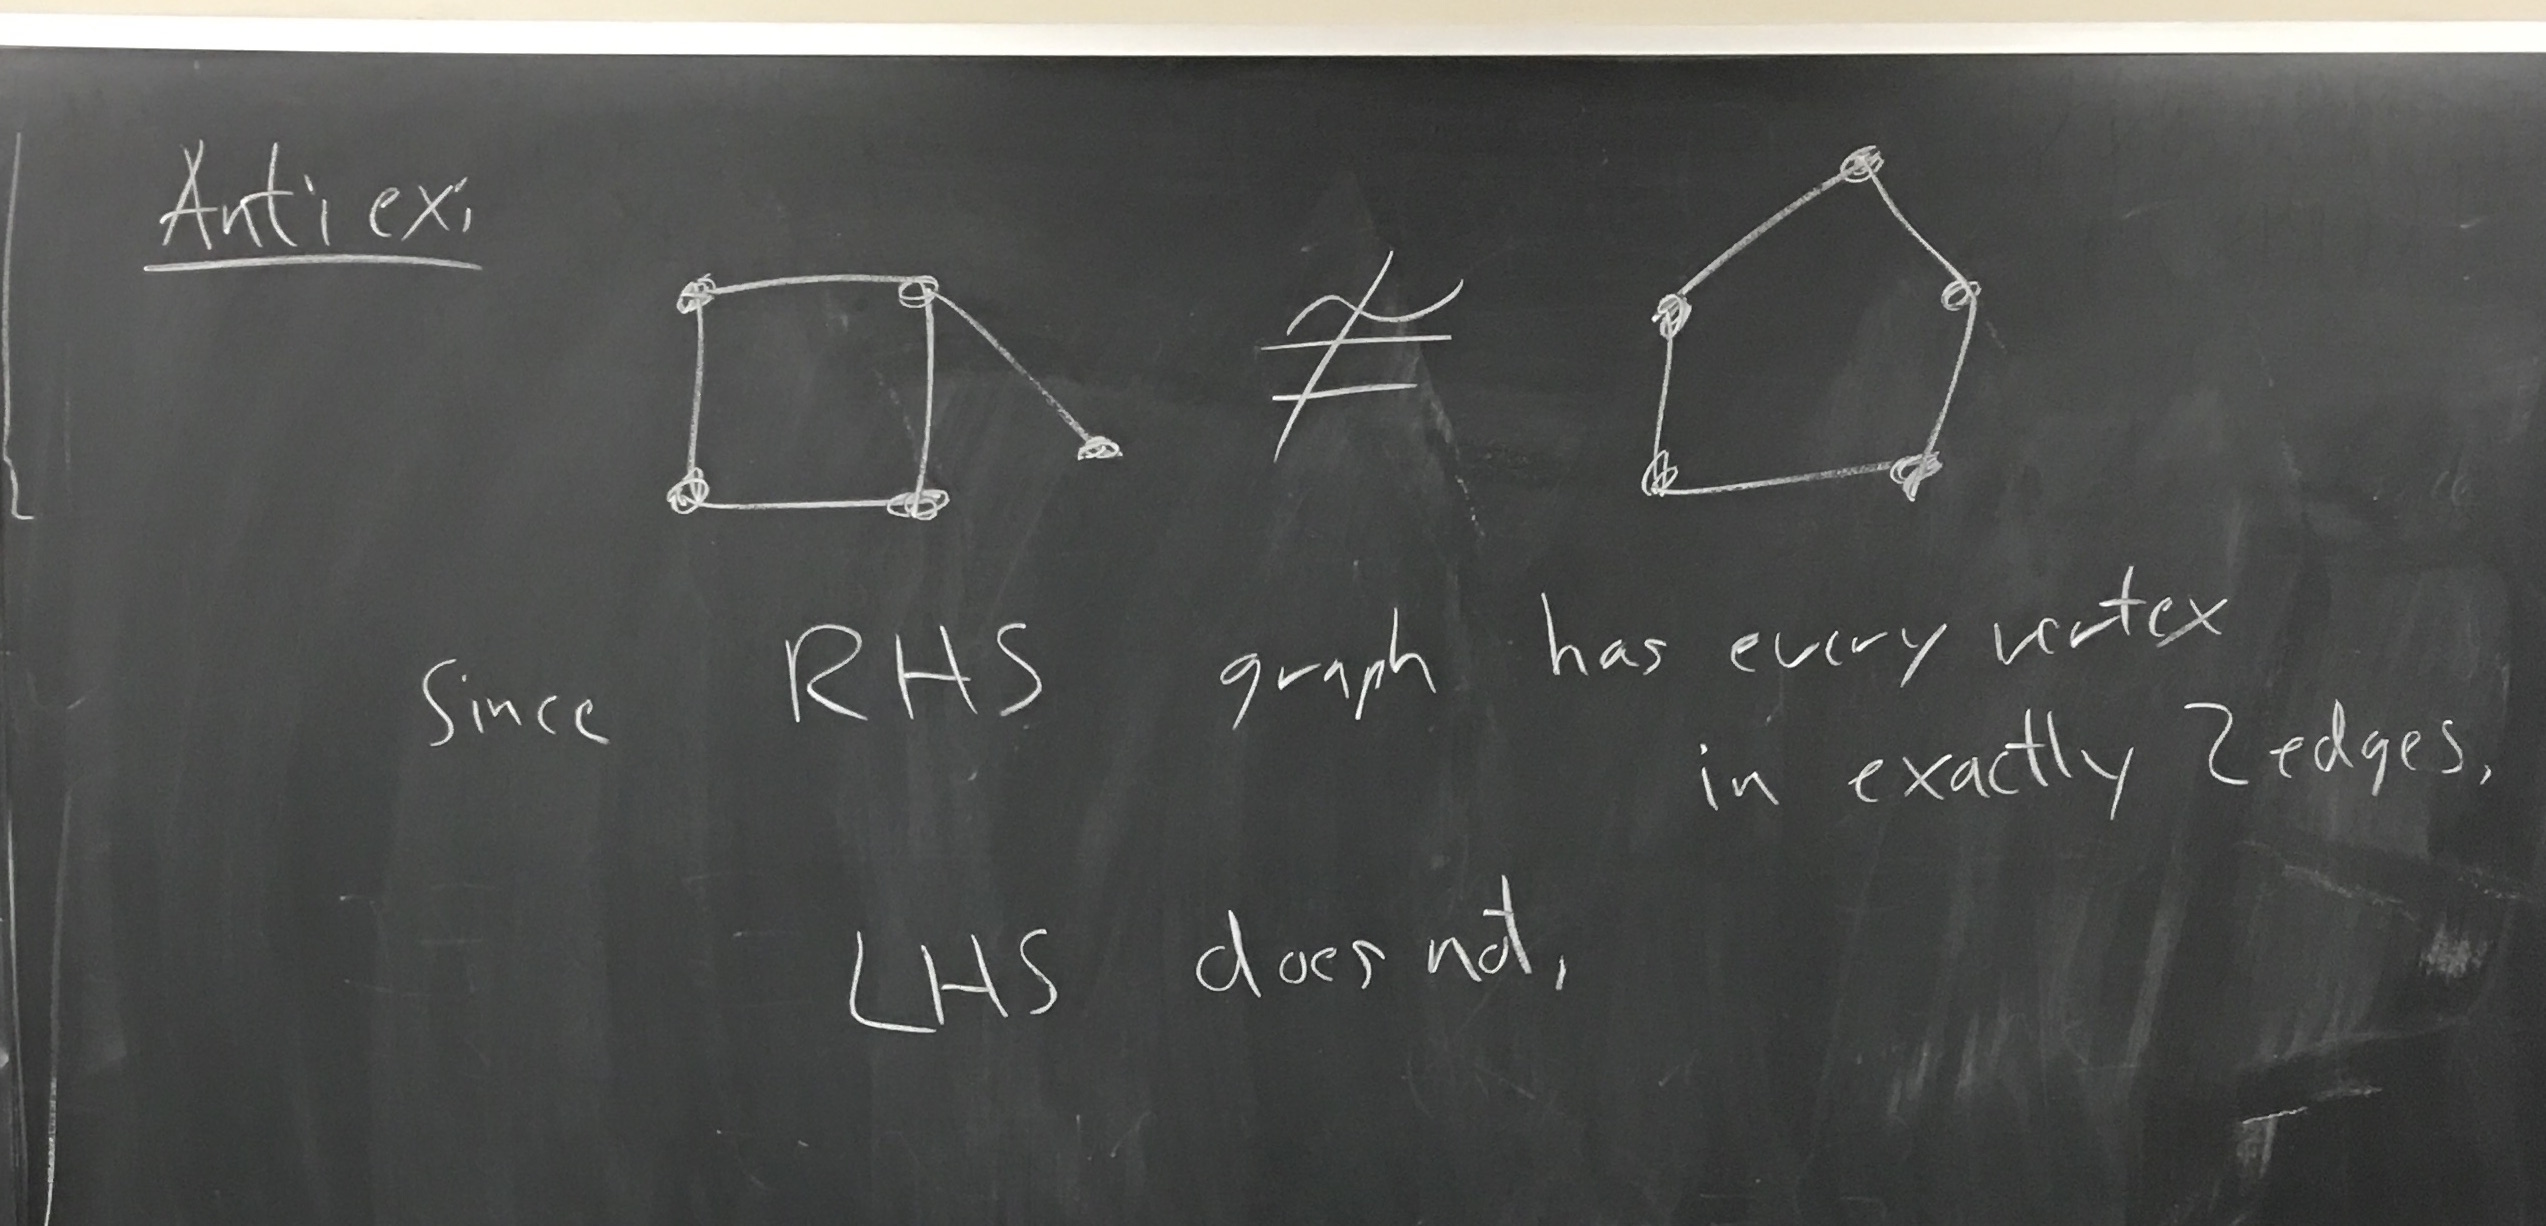 Anti ex.
≇
Since RHS graph has every vertex
in exactly 2 edges,
LHS does not.